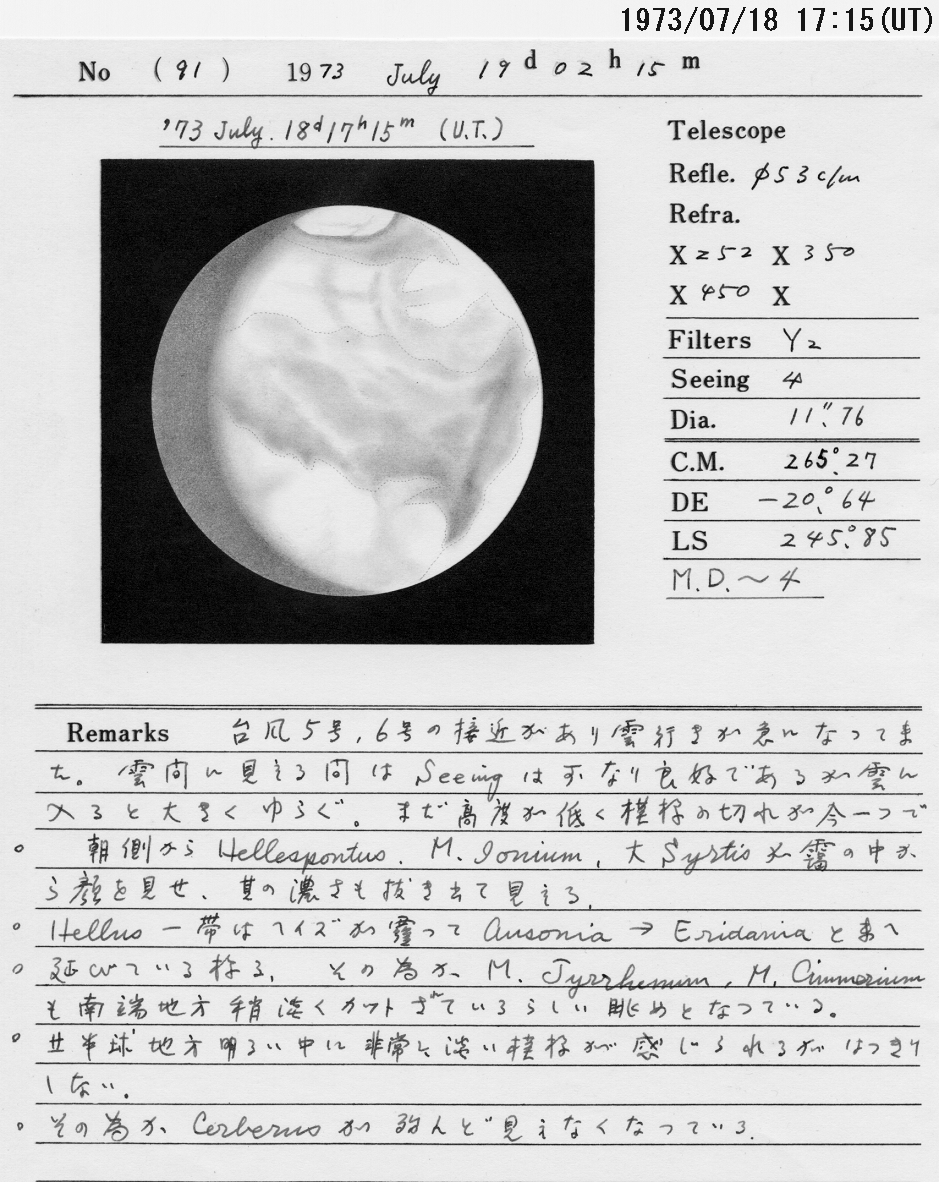 1973/07/18 17:15(UT)
No (91) 1973 July 19 d 02 h 15 m
'73 July. 18d17h15m (U.T.)
Telescope
Refle. φ53c/m
Refra.
X252 X350
X450 X
Filters Y2
Seeing 4
Dia. 11".76
C.M. 265°.27
DE -20.°64
LS 245°.85
M.D.~4
Remarks 台風5号,6号の接近があり雲行きが急になってき
た。雲間に見える間は Seeing はかなり良好であるが雲に
入ると大きくゆらぐ。まだ高度が低く模様の切れが今一つで
朝側から Hellespontus, M. Ionium, 大 Syrtis が靄の中か
ら顔を見せ、其の濃さも抜き出て見える.
Hellus 一帯はヘイズが Ausonia → Eridania と東へ
延びている様る. その為か M. Tyrrhenum, M. Cimmerium
も南端地方稍淡くカットされているらしい眺めとなっている。
半球地方明るい中に非常に淡い模様が感じられるがはっきり
しない.
その為か Cerberus が殆んど見えなくなっている.